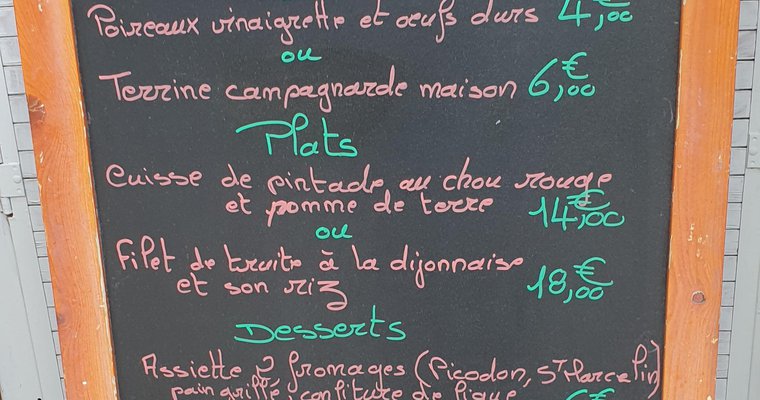 Poireaux vinaigrette et œufs durs 4,00€
ou
Terrine campagnarde maison 6,00€
Plats
Cuisse de pintade au chou rouge
et pomme de terre 14,00€
ou
Filet de truite à la dijonnaise
et son riz 18,00€
Desserts
Assiette 2 fromages (Picodon, St Marcellin)
pain grillé, confiture de figue 6€